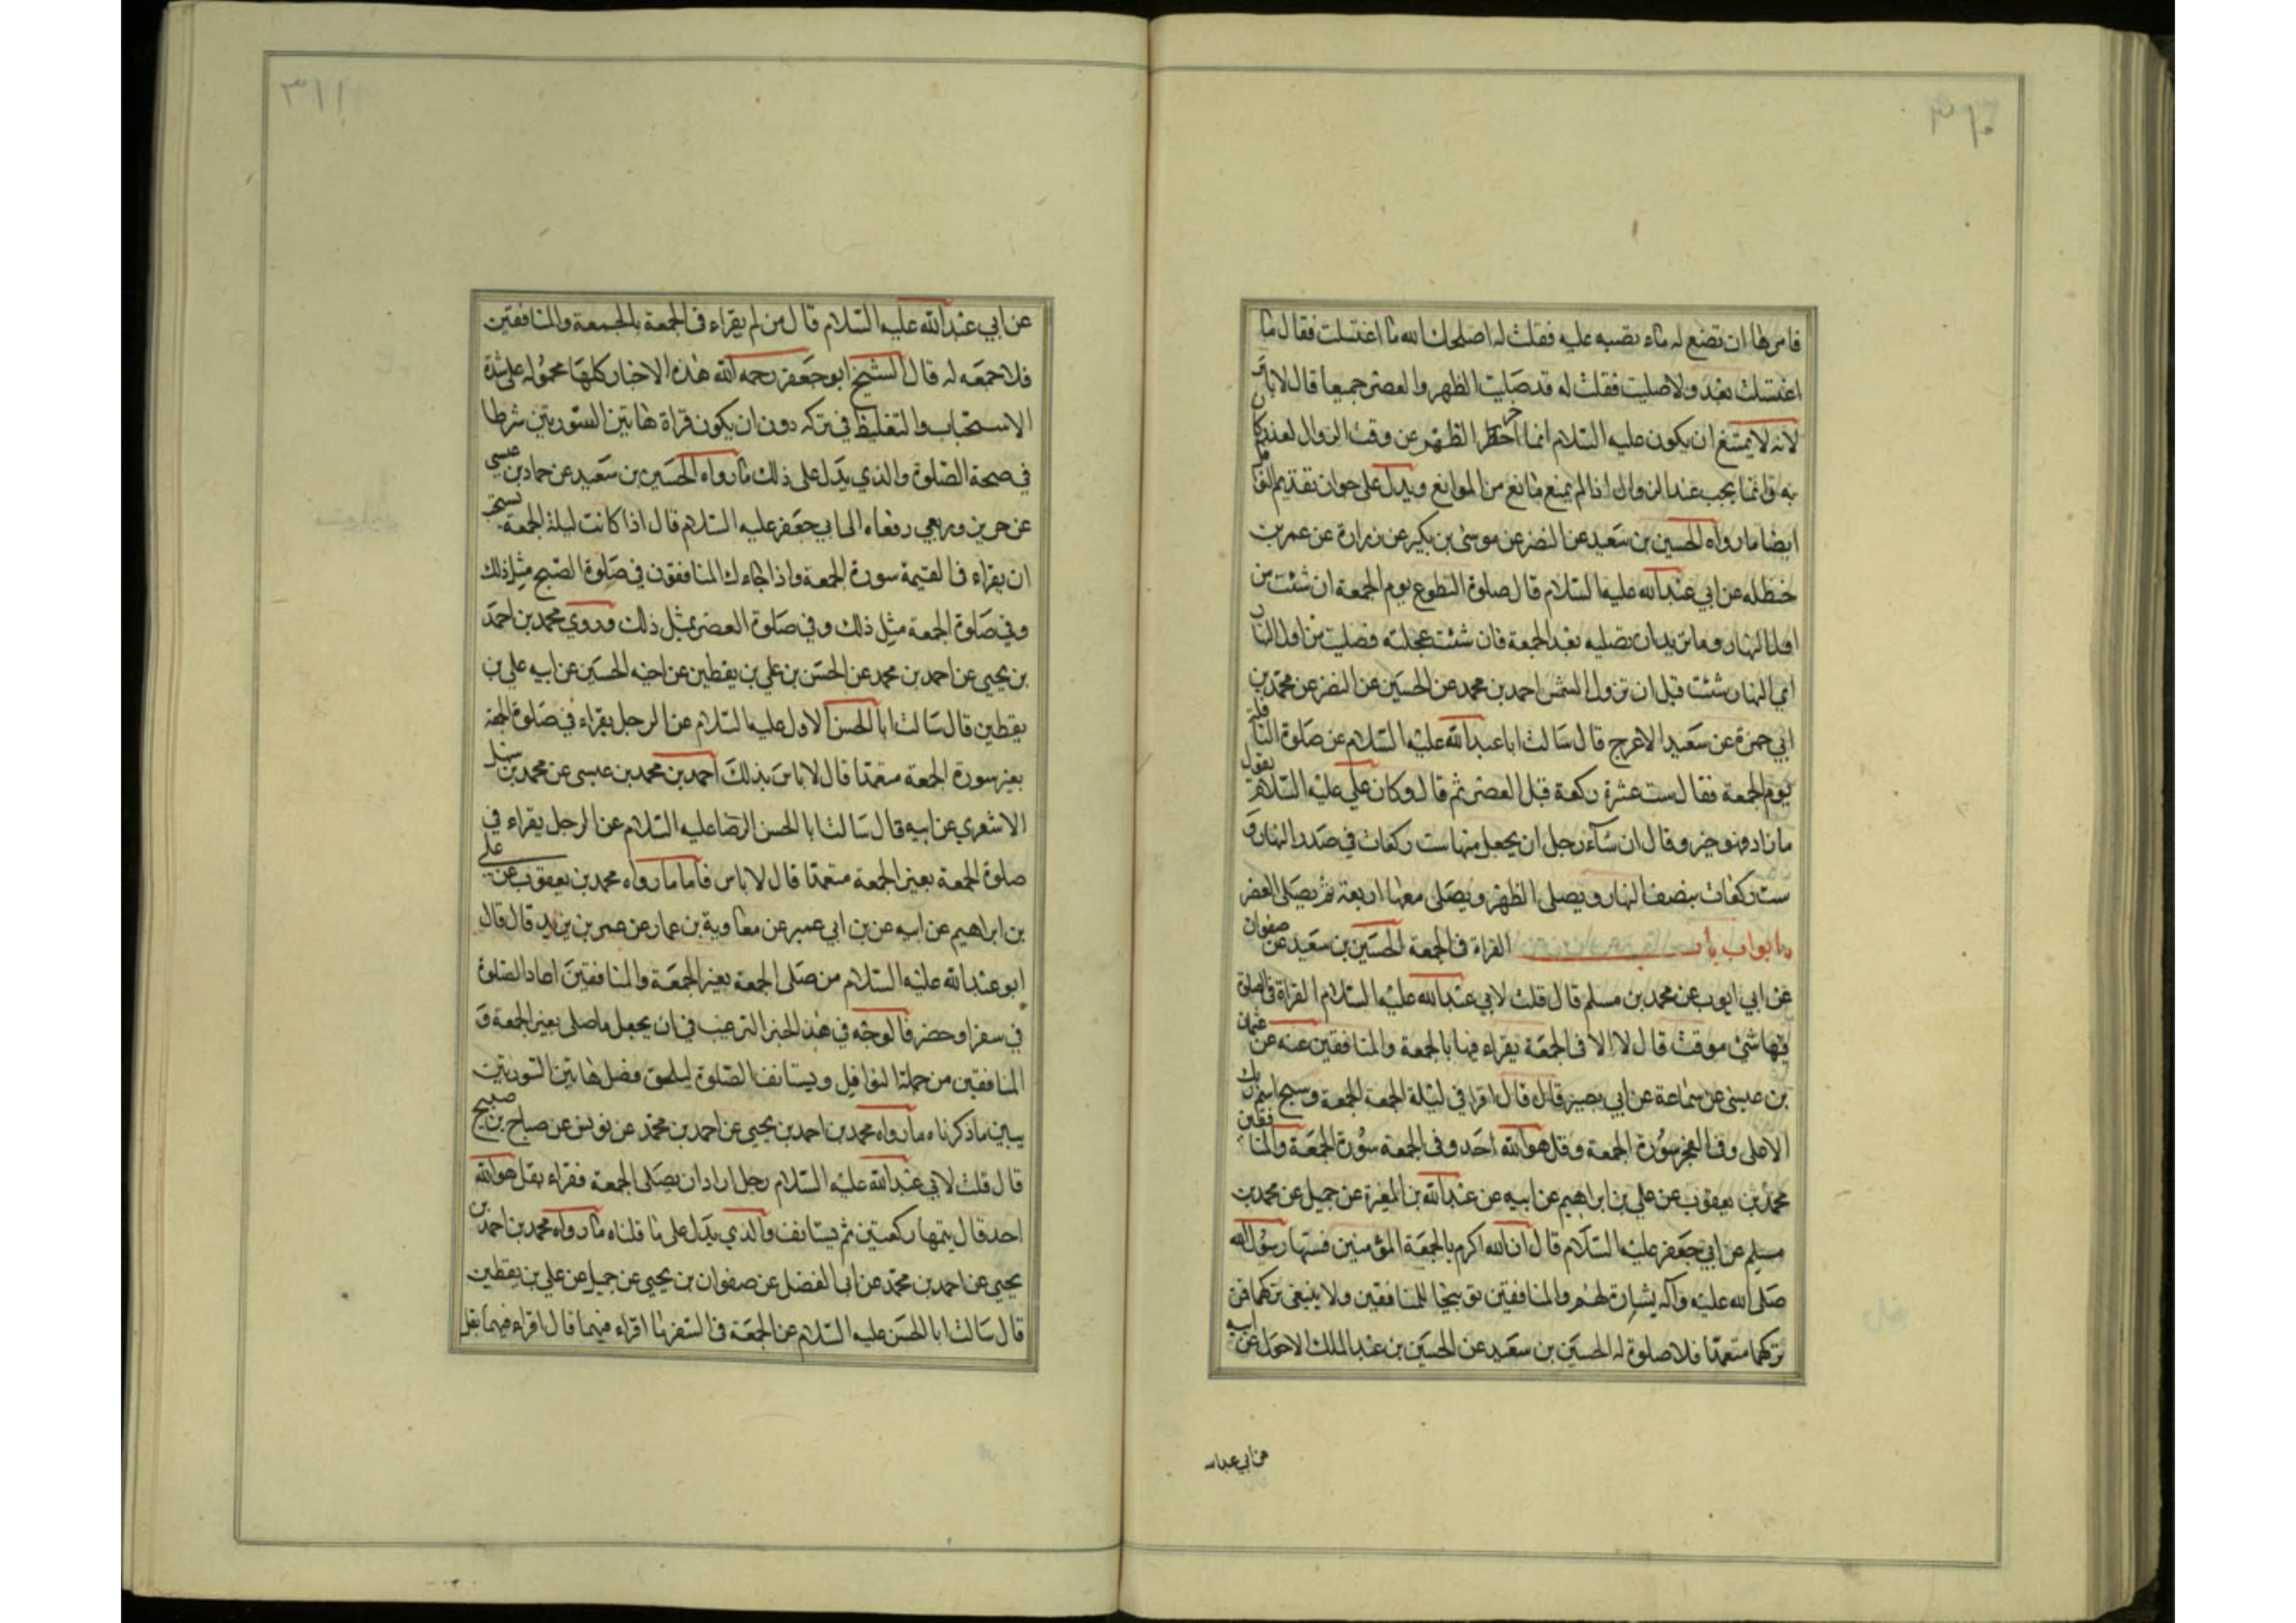 ٣١٠
فامرها ان تضع له ماء يصبه عليه فقلت له اصلحك الله ما اغتسلت فقال ما
اغتسلت بعد ولا صليت فقلت له قد صليت الظهر والعصر جميعا قال لا باس
لانه لا يمتنع ان يكون عليه السلام انما اخر الظهر عن وقت الزوال لعذر كان
به وانما يجب عند الزوال اذا لم يمنع مانع من الموانع ويدل على جواز تقديم النوافل
ايضا ما رواه الحسين بن سعيد عن النضر عن موسى بن بكير عن زرارة عن عمر بن
حنظله عن ابي عبدالله عليه السلام قال صلوة التطوع يوم الجمعة ان شئت من
اول النهار وما تريد ان تصليه بعد الجمعة فان شئت عجلته فصليت من اول النهار
اي النهار شئت قبل ان تزول الشمس احمد بن محمد عن الحسين عن النضر عن محمد بن
ابي حمزة عن سعيد الاعرج قال سالت ابا عبدالله عليه السلام عن صلوة النافلة
يوم الجمعة فقال ست عشرة ركعة قبل العصر ثم قال وكان علي عليه السلام يقول
ما زاد فهو خير وقال ان شاء رجل ان يجعل منها ست ركعات في صدر النهار و
ست ركعات بنصف النهار ويصلي الظهر ويصلي معها اربعة ثم يصلي العصر
ابواب باب القراة في الجمعة الحسين بن سعيد عن صفوان
عن ابي ايوب عن محمد بن مسلم قال قلت لابي عبدالله عليه السلام القراة في الصلوة
فيها شئ موقت قال لا الا في الجمعة يقراء فيها بالجمعة والمنافقين عنه عن عثمان
بن عيسى عن سماعة عن ابي بصير قال قال اقرا في ليلة الجمعة الجمعة وسبح اسم ربك
الاعلى وفي الفجر سورة الجمعة وقل هو الله احد وفي الجمعة سورة الجمعة والمنافقين
محمد بن يعقوب عن علي بن ابراهيم عن ابيه عن عبدالله بن المغيرة عن جميل عن محمد بن
مسلم عن ابي جعفر عليه السلام قال ان الله اكرم بالجمعة المؤمنين فسنها رسول الله
صلى الله عليه وآله بشارة لهم والمنافقين توبيخا للمنافقين ولا ينبغي تركهما فمن
تركهما متعمدا فلا صلوة له الحسين بن سعيد عن الحسين بن عبد الملك الاحول عن ابيه
عن ابي عبدالله
٣١١
عن ابي عبدالله عليه السلام قال من لم يقراء في الجمعة بالجمعة والمنافقين
فلا جمعه له قال الشيخ ابو جعفر رحمه الله هذه الاخبار كلها محموله على شدة
الاستحباب والتغليظ في تركه دون ان يكون قراة هاتين السورتين شرطا
في صحة الصلوة والذي يدل على ذلك ما رواه الحسين بن سعيد عن حماد بن عيسى
عن حريز وربعي رفعاه الى ابي جعفر عليه السلام قال اذا كانت ليلة الجمعة يستحب
ان يقراء في العتمة سورة الجمعة واذا جاءك المنافقون في صلوة الصبح مثل ذلك
وفي صلوة الجمعة مثل ذلك وفي صلوة العصر بمثل ذلك وروي محمد بن احمد
بن يحيى عن احمد بن محمد عن الحسن بن علي بن يقطين عن اخيه الحسين عن ابيه علي بن
يقطين قال سالت ابا الحسن الاول عليه السلام عن الرجل يقراء في صلوة الجمعة
بغير سورة الجمعة متعمدا قال لا باس بذلك احمد بن محمد بن عيسى عن محمد بن سهل
الاشعري عن ابيه قال سالت ابا الحسن الرضا عليه السلام عن الرجل يقراء في
صلوة الجمعة بغير الجمعة متعمدا قال لا باس فاما ما رواه محمد بن يعقوب عن علي
بن ابراهيم عن ابيه عن بن ابي عمير عن معاوية بن عمار عن عمر بن يزيد قال قال
ابو عبدالله عليه السلام من صلى الجمعة بغير الجمعة والمنافقين اعاد الصلوة
في سفر او حضر فالوجه في هذا الخبر الترغيب في ان يجعل ما صلى بغير الجمعة و
المنافقين من جملة النوافل ويستانف الصلوة ليلحق فضل هاتين السورتين
يبين ما ذكرناه ما رواه محمد بن احمد بن يحيى عن احمد بن محمد عن يونس عن صباح بن صبيح
قال قلت لابي عبدالله عليه السلام رجل اراد ان يصلى الجمعة فقراء بقل هو الله
احد قال يتمها ركعتين ثم يستانف والذي يدل على ما قلناه ما رواه محمد بن احمد بن
يحيى عن احمد بن محمد عن ابي الفضل عن صفوان بن يحيى عن جميل عن علي بن يقطين
قال سالت ابا الحسن عليه السلام عن الجمعة في السفر ما اقراء فيهما قال اقراء فيهما بقل